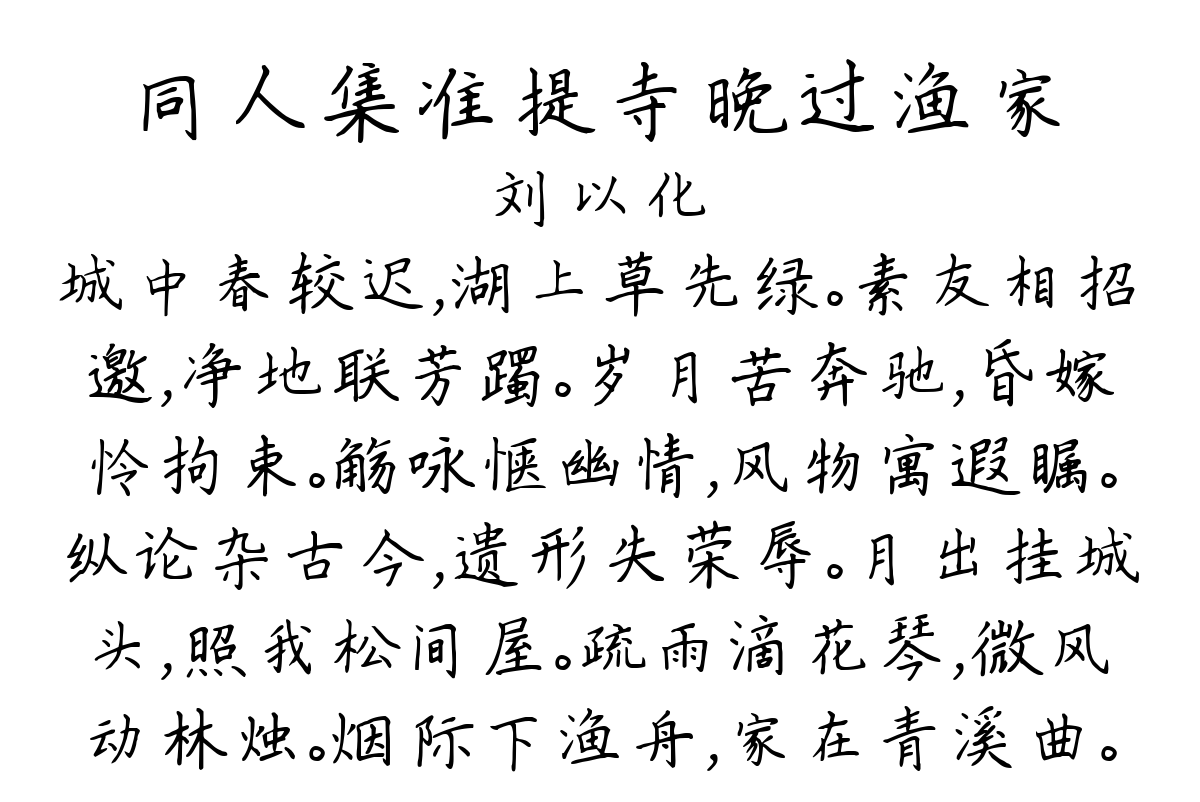 同人集准提寺晚过渔家
刘以化
城中春较迟,湖上草先绿。素友相招
邀,净地联芳躅。岁月苦奔驰,昏嫁
怜拘束。觞咏惬幽情,风物寓遐瞩。
纵论杂古今,遗形失荣辱。月出挂城
头,照我松间屋。疏雨滴花琴,微风
动林烛。烟际下渔舟,家在青溪曲。